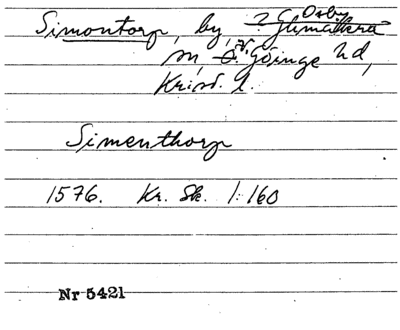 Osby
Simontorp, by, ? G. Glimåkra
sn, Ö. V. Göinge hd,
Krist. l.
Simenthorp
1576. Kr. Sk. 1:160
Nr 5421